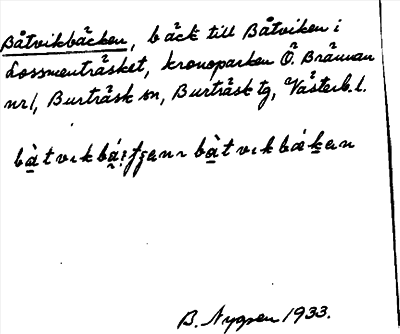 Båtvikbäcken, bäck till Båtviken i
Lossmenträsket, kronoparken Ö. Brännan
nr 1, Burträsk sn, Burträsk tg, Västerb. l.
bàtvıkbá̤i̯ʃʃanı bàtvıkbákan
B. Nygren 1933.